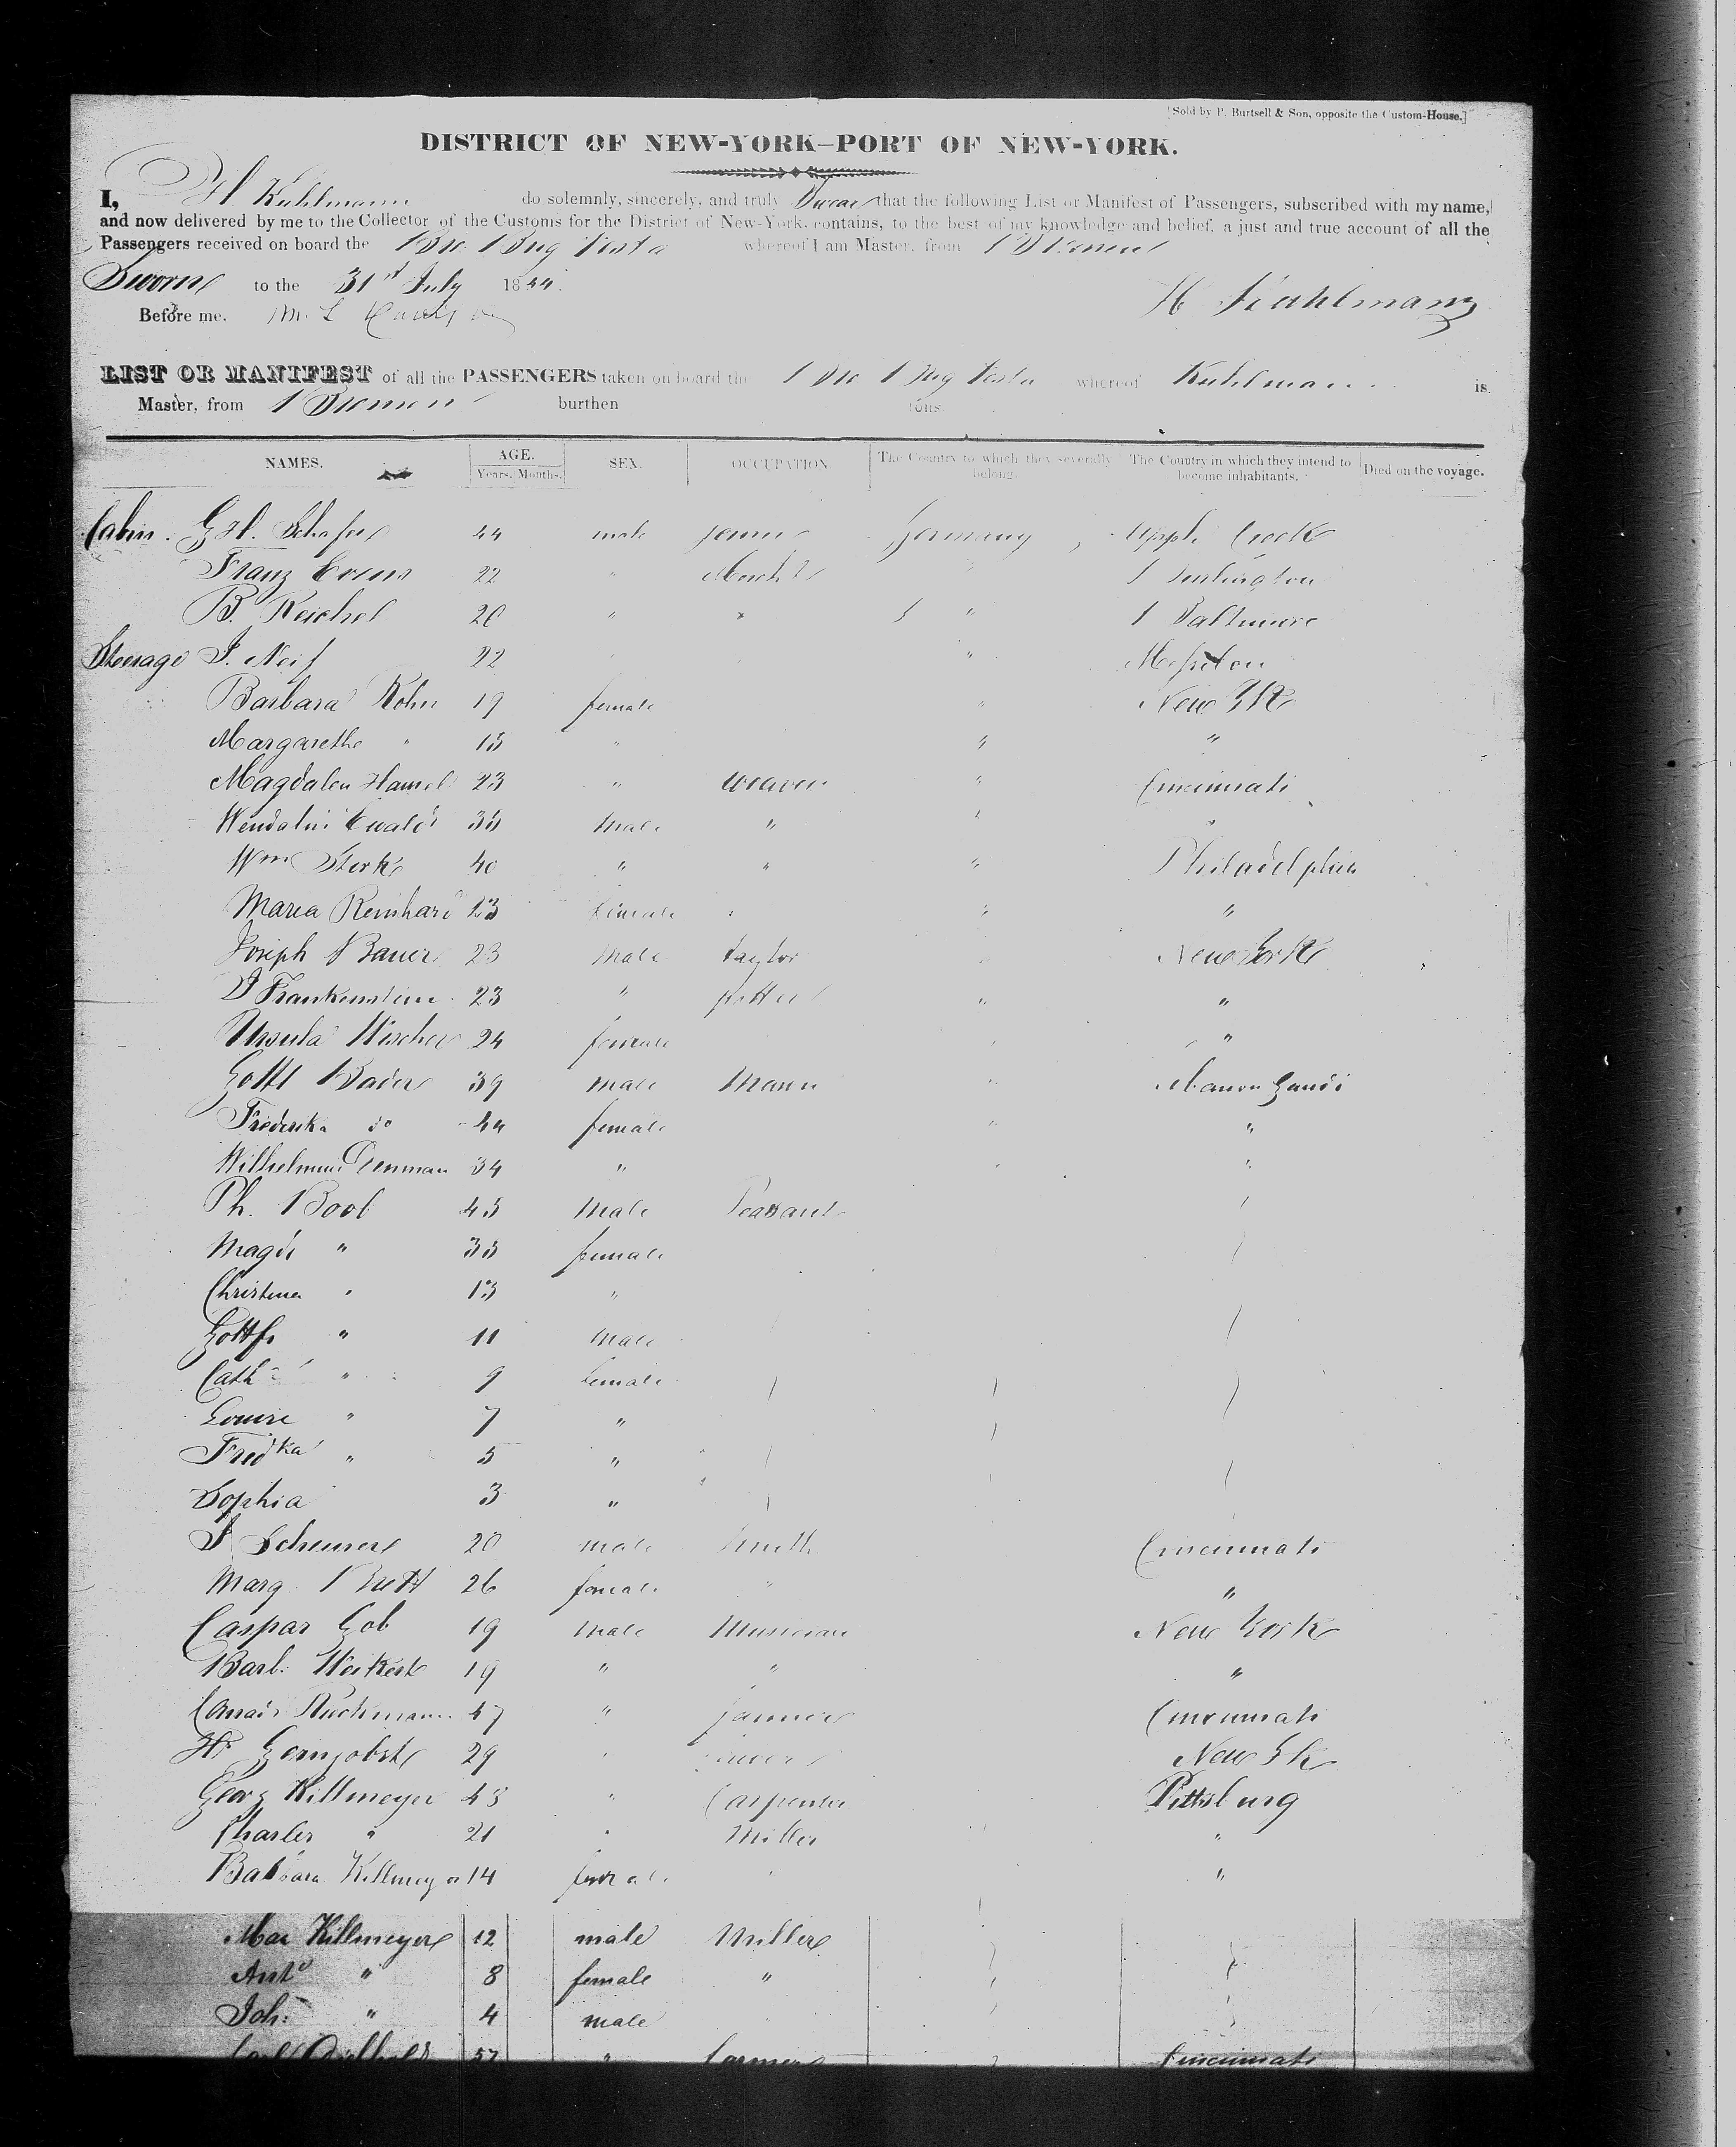 [Sold by P. Burtsell & Son, opposite the Custom-House.]
DISTRICT OF NEW-YORK–PORT OF NEW-YORK.
I, H Kuhlmann do solemnly, sincerely, and truly Swear that the following List or Manifest of Passengers, subscribed with my name,
and now delivered by me to the Collector of the Customs for the District of New-York, contains, to the best of my knowledge and belief, a just and true account of all the
Passengers received on board the Bre. Brig Vesta whereof I am Master, from Bremen
Sworn to the 31st July 1844.
Before me.
H Kuhlmann
LIST OR MANIFEST of all the PASSENGERS taken on board the Bre Brig Vesta whereof Kuhlmann is
Master, from Bremen burthen tons
NAMES. AGE. Years. Months. SEX. OCCUPATION. The Country to which they severally belong. The Country in which they intend to become inhabitants. Died on the voyage.
Cabin. G H. Schafer 44 male Germany Creek
Franz 22 " Mercht "
B. Reichel 20 " " " Baltimore
Steerage J. Neif 22 "
Barbara Kohn 19 female " New York
Margarethe " 15 " " "
Magdalen Hamel 23 " weaver " Cincinnati
Wendalin Ewald 35 male " " "
Wm Stork 40 " " " Philadelphia
Maria Reinhard 13 female " "
Joseph Bauer 23 male taylor New York
J Frankenstein 23 " potter " "
Ursula 24 female "
Gottl Bader 39 male "
Frederika do 44 female " "
34 "
Ph. Bool 45 male Peasant
Magd " 35 female
Christina " 13 "
Gottf " 11 male
Cath " 9 female
Louise " 7 "
Fredka " 5 "
Sophia 3 "
20 male Smith Cincinnati
Marg. 26 female " "
Caspar Gob 19 male Musician New York
Barb. Weikert 19 " " "
47 " farmer Cincinnati
29 " New Yk
Georg Killmeyer 43 " Carpenter Pittsburg
Charles " 21 " Miller "
Barbara Killmeyer 14 female "
Max Killmeyer 12 male Miller
Anto " 8 female "
Joh: " 4 male
57 " farmer Cincinnati